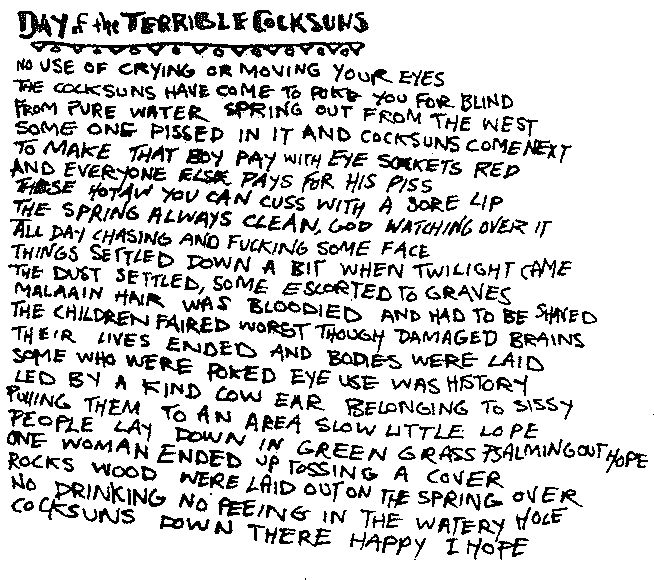 DAY of the TERRIBLE COCKSUNS
NO USE OF CRYING OR MOVING YOUR EYES
THE COCKSUNS HAVE COME TO POKE YOU FOR BLIND
FROM PURE WATER SPRING OUT FROM THE WEST
SOME ONE PISSED IN IT AND COCKSUNS COME NEXT
TO MAKE THAT BOY PAY WITH EYE SOCKETS RED
AND EVERYONE ELSE PAYS FOR HIS PISS
THESE YOU CAN CUSS WITH A SORE LIP
THE SPRING ALWAYS CLEAN, GOD WATCHING OVER IT
ALL DAY CHASING AND FUCKING SOME FACE
THINGS SETTLED DOWN A BIT WHEN TWILIGHT CAME
THE DUST SETTLED, SOME ESCORTED TO GRAVES
MALAAIN HAIR WAS BLOODIED AND HAD TO BE SHAVED
THE CHILDREN FAIRED WORST THOUGH DAMAGED BRAINS
THEIR LIVES ENDED AND BODIES WERE LAID
SOME WHO WERE POKED EYE USE WAS HISTORY
LED BY A KIND COW EAR BELONGING TO SISSY
PULLING THEM TO AN AREA SLOW LITTLE LOPE
PEOPLE LAY DOWN IN GREEN GRASS PSALMING OUT HOPE
ONE WOMAN ENDED UP TOSSING A COVER
ROCKS WOOD WERE LAID OUT ON THE SPRING OVER
NO DRINKING NO PEEING IN THE WATERY HOLE
COCKSUNS DOWN THERE HAPPY I HOPE